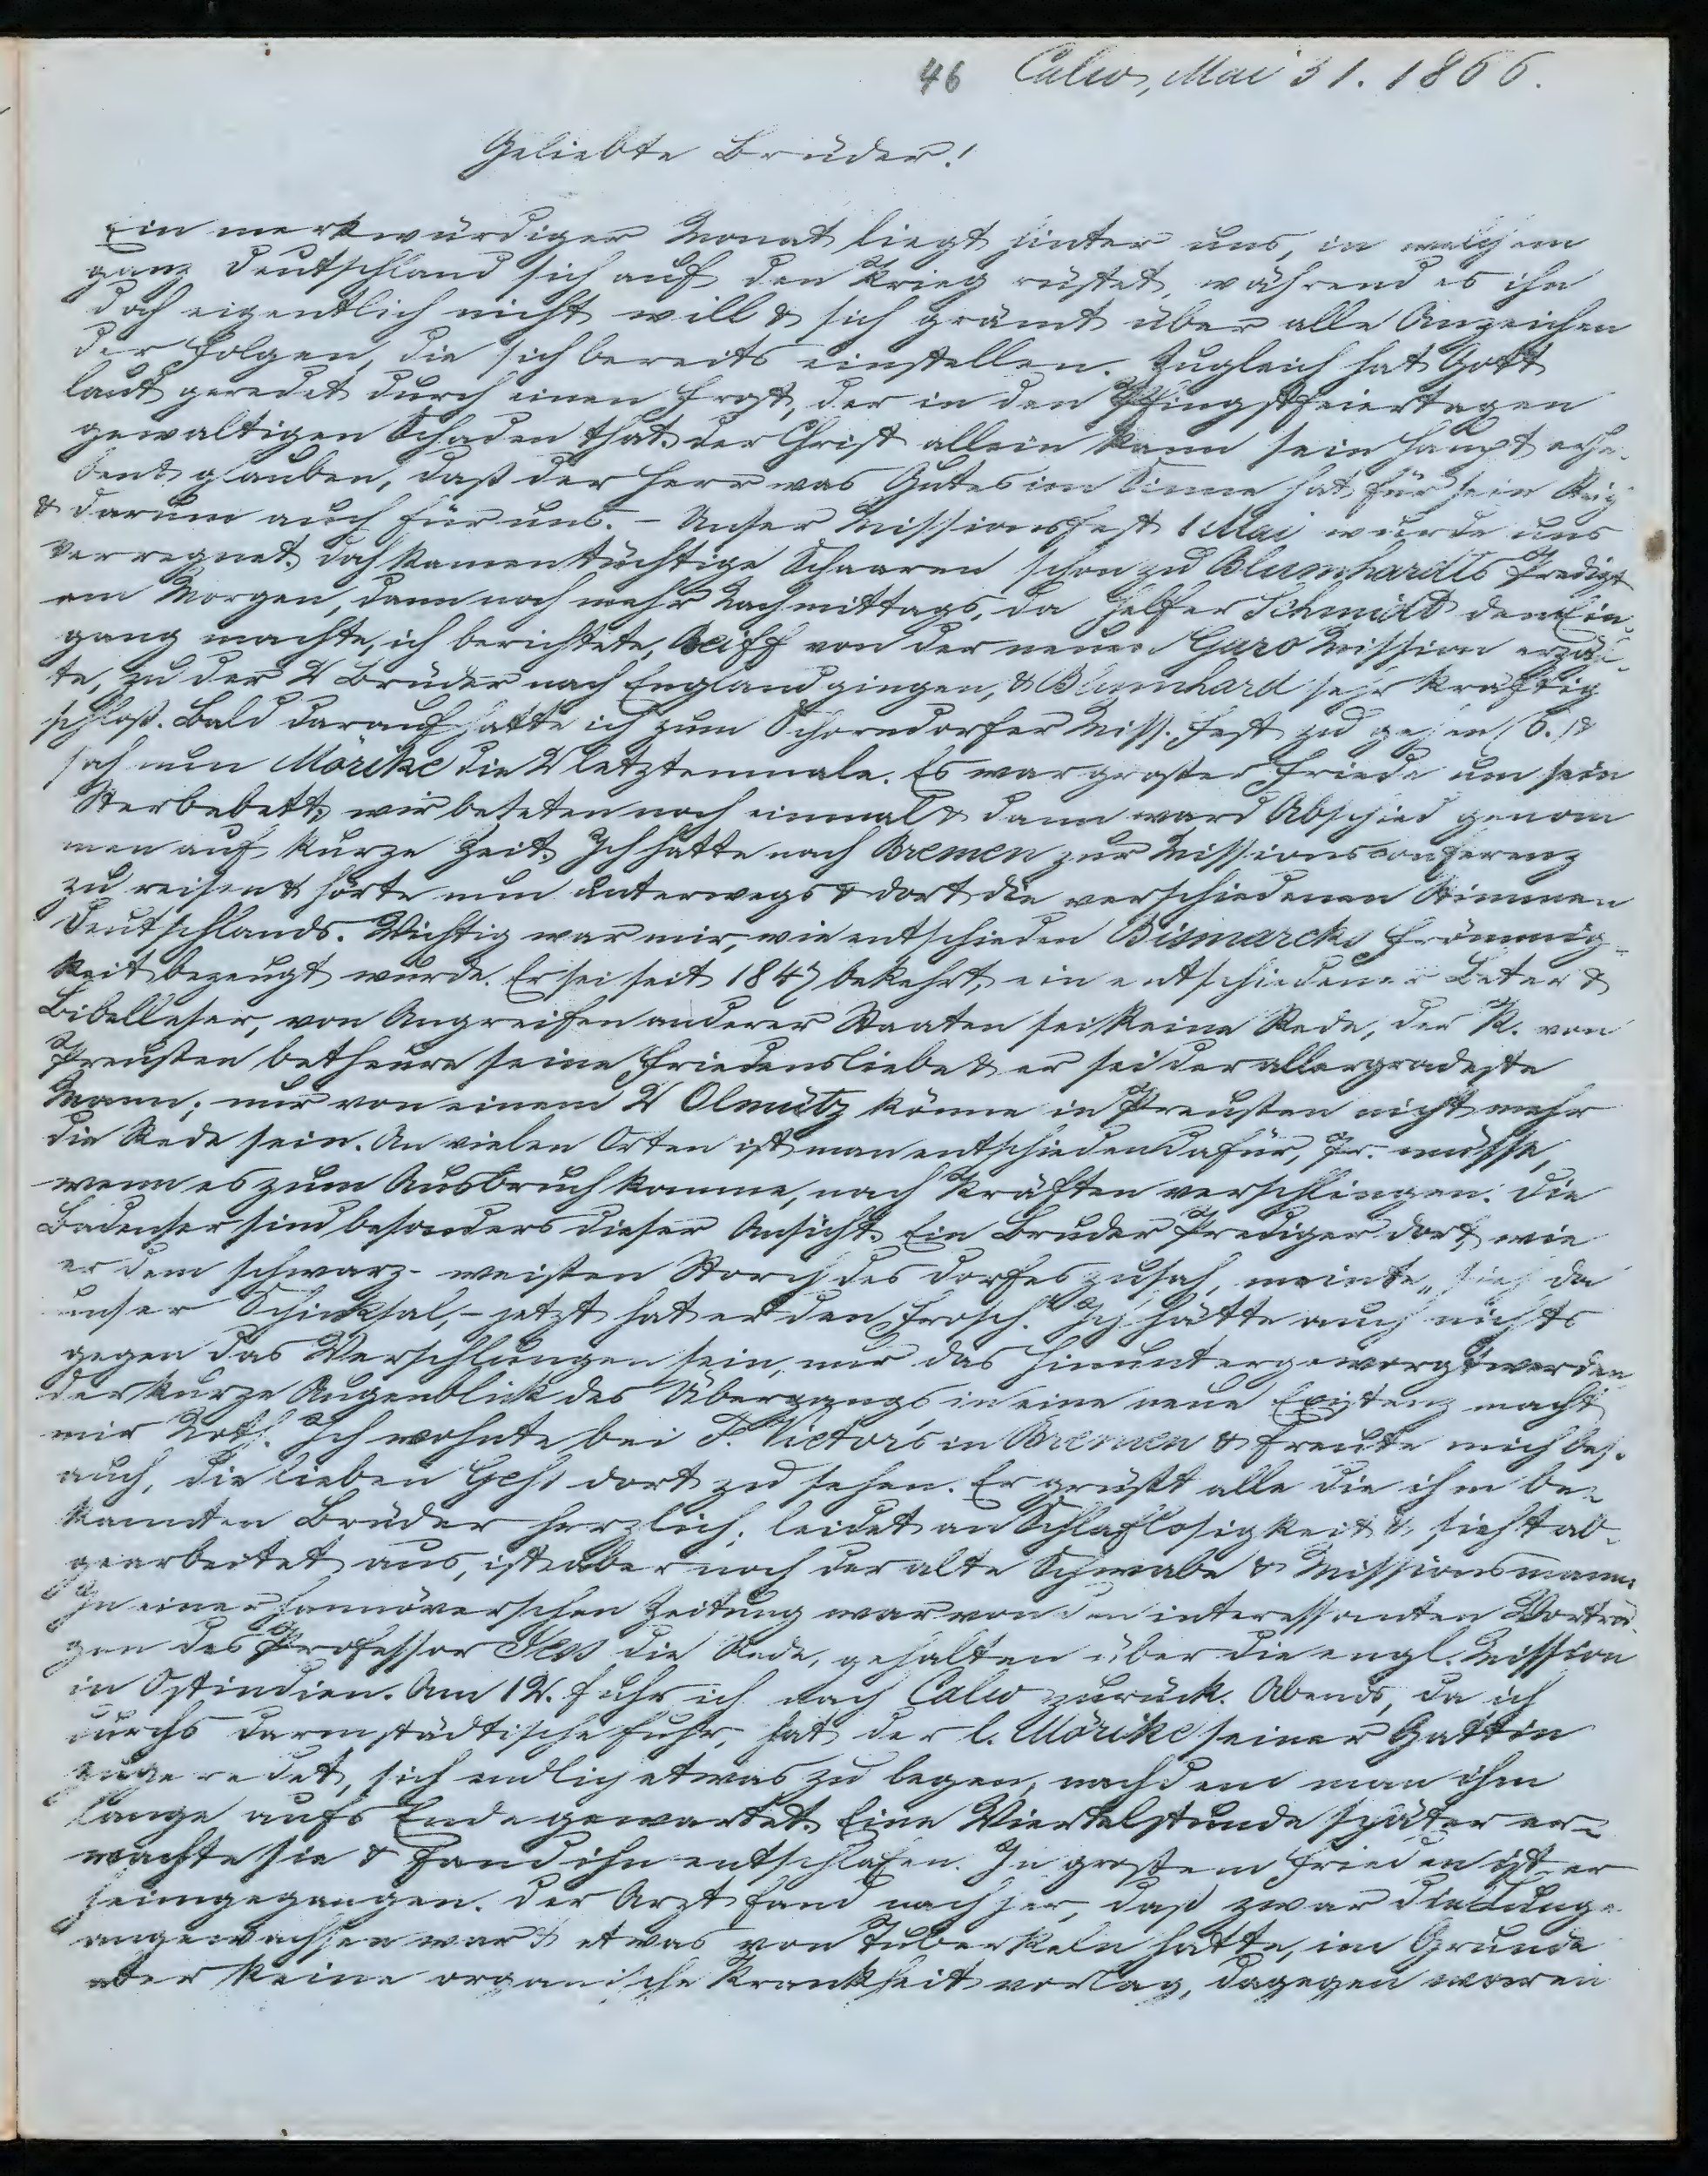 46 Calw, Mai 31. 1866.
Geliebte Brüder!
Ein merkwürdiger Monat liegt hinter uns, in welchem
ganz Deutschland sich auf den Krieg rüstet, während es ihn
doch eigentlich nicht will & sich grämt über alle Anzeichen
der Folgen, die sich bereits einstellen. Zugleich hat Gott
laut geredet durch einen Frost, der in den Pfingstfeiertagen
gewaltigen Schaden that. Der Christ allein kann sein Haupt erhe-
ben & glauben, daß der Herr was Gutes im Sinne hat für sein Reich
& darum auch für uns. - Unser Missionsfest 1 Mai wurde uns
verregnet. doch kamen tüchtige Schaaren schon zu Blumhardts Predigt
am Morgen, dann noch mehr Nachmittags, da Helfer Schmidt den Ein-
gang machte, ich berichtete, Reiff von der neuen Garo Mission erzäl-
te, zu der 2 Brüder nach England gingen, & Blumhard sehr kräftig
schloß. Bald darauf hatte ich zum Schorndorfer Miss. Fest zu gehen (6.) &
sah nun Mörike die 2 letztenmale. Es war großer Friede um sein
Sterbebett; wir beteten noch einmal & dann ward Abschied genom
men auf kurze Zeit. Ich hatte nach Bremen zur Missionsconferenz
zu reisen & hörte nun unterwegs & dort die verschiedenen Stimmen
Deutschlands. Wichtig war mir, wie entschieden Bismarcks Frömmig-
keit bezeugt wurde. Er sei seit 1847 bekehrt, ein entschiedener Beter &
Bibelleser, von Angreifen anderer Staaten sei keine Rede, der K. von
Preußen betheure seine Friedensliebe & er sei der allergradeste
Mann; nur von einem 2 Olmütz könne in Preußen nicht mehr
die Rede sein. An vielen Orten ist man entschieden dafür, Pr. müsse,
wenn es zum Ausbruch komme, nach Kräften verschlingen. Die
Badenser sind besonders dieser Ansicht. Ein Bruder Prediger dort, wie
er dem schwarz-weißen Storch des Dorfes zusah, meinte „sieh da
unser Schicksal, - jetzt hat er den Frosch." Ich hätte auch nichts
gegen das Verschlungen sein, nur das Hinuntergeworgt werden
der kurze Augenblick des Übergangs in eine neue Existenz macht
mir Noth. Ich wohnte bei J. Vietor's in Bremen & freute mich bes.
auch, die lieben Gess dort zu sehen. Er grüßt alle die ihm be-
kannten Brüder herzlich; leidet an Schlaflosigkeit & sieht ab-
gearbeitet aus, ist aber noch der alte Schwabe & Missionsmann.
In einer hannöverschen Zeitung war von den interessanten Vorträ-
gen des Professor Yes die Rede, gehalten über die engl. Mission
in Ostindien. Am 12. fuhr ich nach Calw zurück. Abends, da ich
durchs Darmstädtische fuhr, hat der l. Mörike seiner Gattin
zugeredet, sich endlich etwas zu legen, nachdem man ihm
lange aufs Ende gewartet. Eine Viertelstunde später er-
wachte sie & fand ihn entschlafen. In großem Frieden ist er
heimgegangen. Der Arzt fand nachher, daß zwar die Lunge
angewachsen war & etwas von Tuberkeln hatte, im Grunde
aber keine organische Krankheit vorlag, dagegen waren